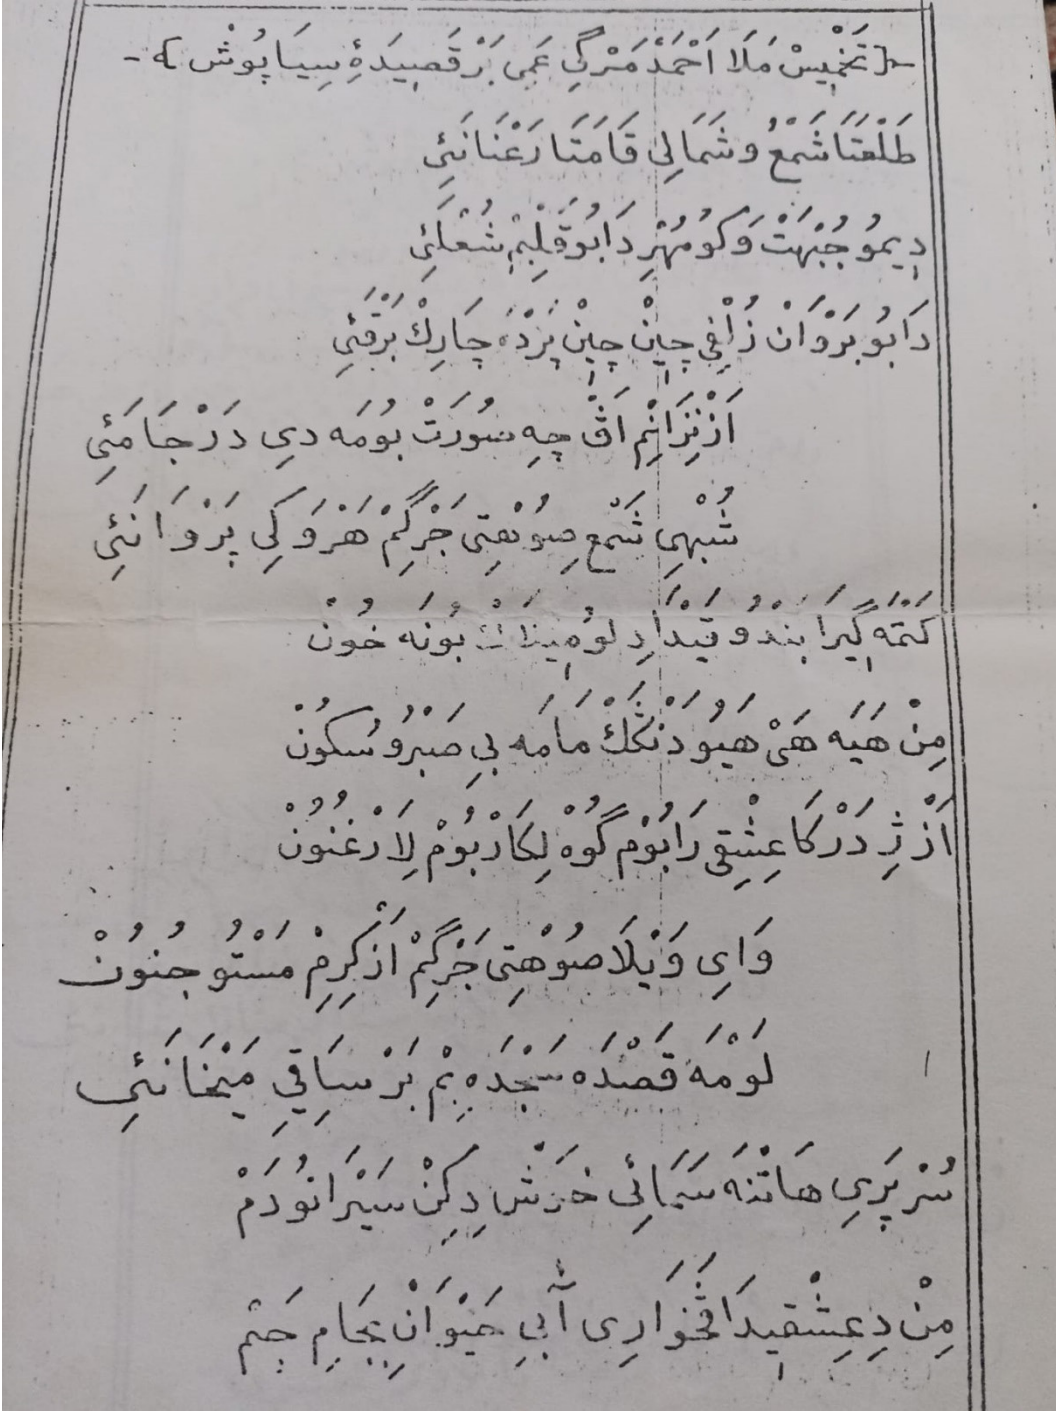 -{ تَخْمِيسْ مَلَا اَحْمَدْ مَرْگِی عَمِی بَرْ قَصِيدَۀِ سِيَاپُوشْ }-
طَلْعَتَا شَمْعُ و شَمَالِی قَامَتَا رَعْنَا نَئِی
دِيمُو جُبْهَتْ وَكُو مُهْرِ دَابُو قَلْبِمْ شُعْلَئِی
دَابُو بَرْوَانْ زُلْفِی چِينْ چِينْ پَرْدَه چَارِكْ بُرْقَئِی
اَزْ نِزَانِمْ اَڤْ چِه صُورَتْ بُومَه دِی دَرْ جَامَئِی
شُبْهِی شَمْع صِوُهْتِی جَرْگِمْ هَرْوَكِی پَرْوَانَئِی
كَتْمَه گِيرَا بَنْدُو قَيْدَا دِلْ بُونَه خُونْ
مِنْ هَيَه هَیْ هَیُو دَنْگَكْ مَامَه بِی صَبْرُو سُكُونْ
اَزْ ژِ دَرْكَا عِشْقِی رَابُومْ گُوهْ لِكَارْ بُومْ لِاَرْغَنُونْ
وَایِ وَيْلَا صُوهْتِی جَرْگِمْ اَزْ كِرِمْ مَسْتُو جُنُونْ
لَوْمَه قَصْدَه سَجْدَه بِمْ بَرْ سَاقِیِ مَيْخَانَئِی
سُرْ پَرِی هَاتْنَه سَمَائِی خَوَشْ دِكِنْ سَيْرَانُو دَمْ
مِنْ دِعِشْقِيدَا ڤَخْوَارِی آبِی حَيْوَانْ بِجَامِ جَمْ